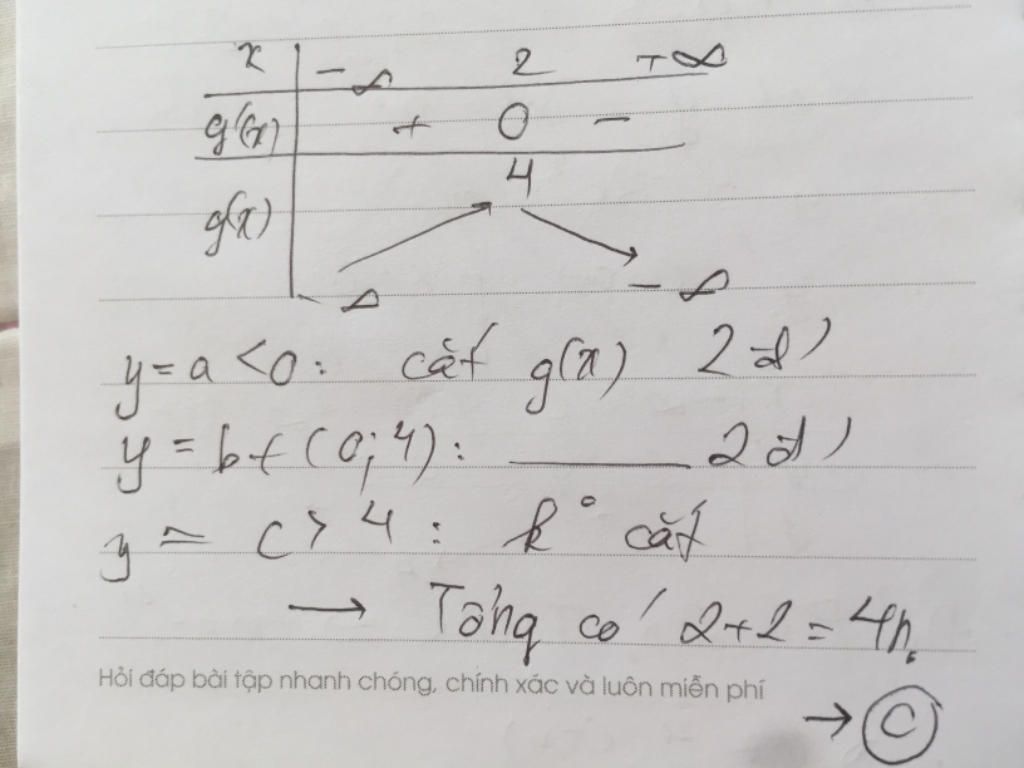 x -∞ 2 +∞
g'(x) + 0 -
4
g(x)
-∞ -∞
y = a < 0 : cắt g(x) 2 đ'
y = b ∈ (0; 4) : ______ 2 đ'
y = c > 4 : k° cắt
→ Tổng có 2+2 = 4n.
Hỏi đáp bài tập nhanh chóng, chính xác và luôn miễn phí
→ C